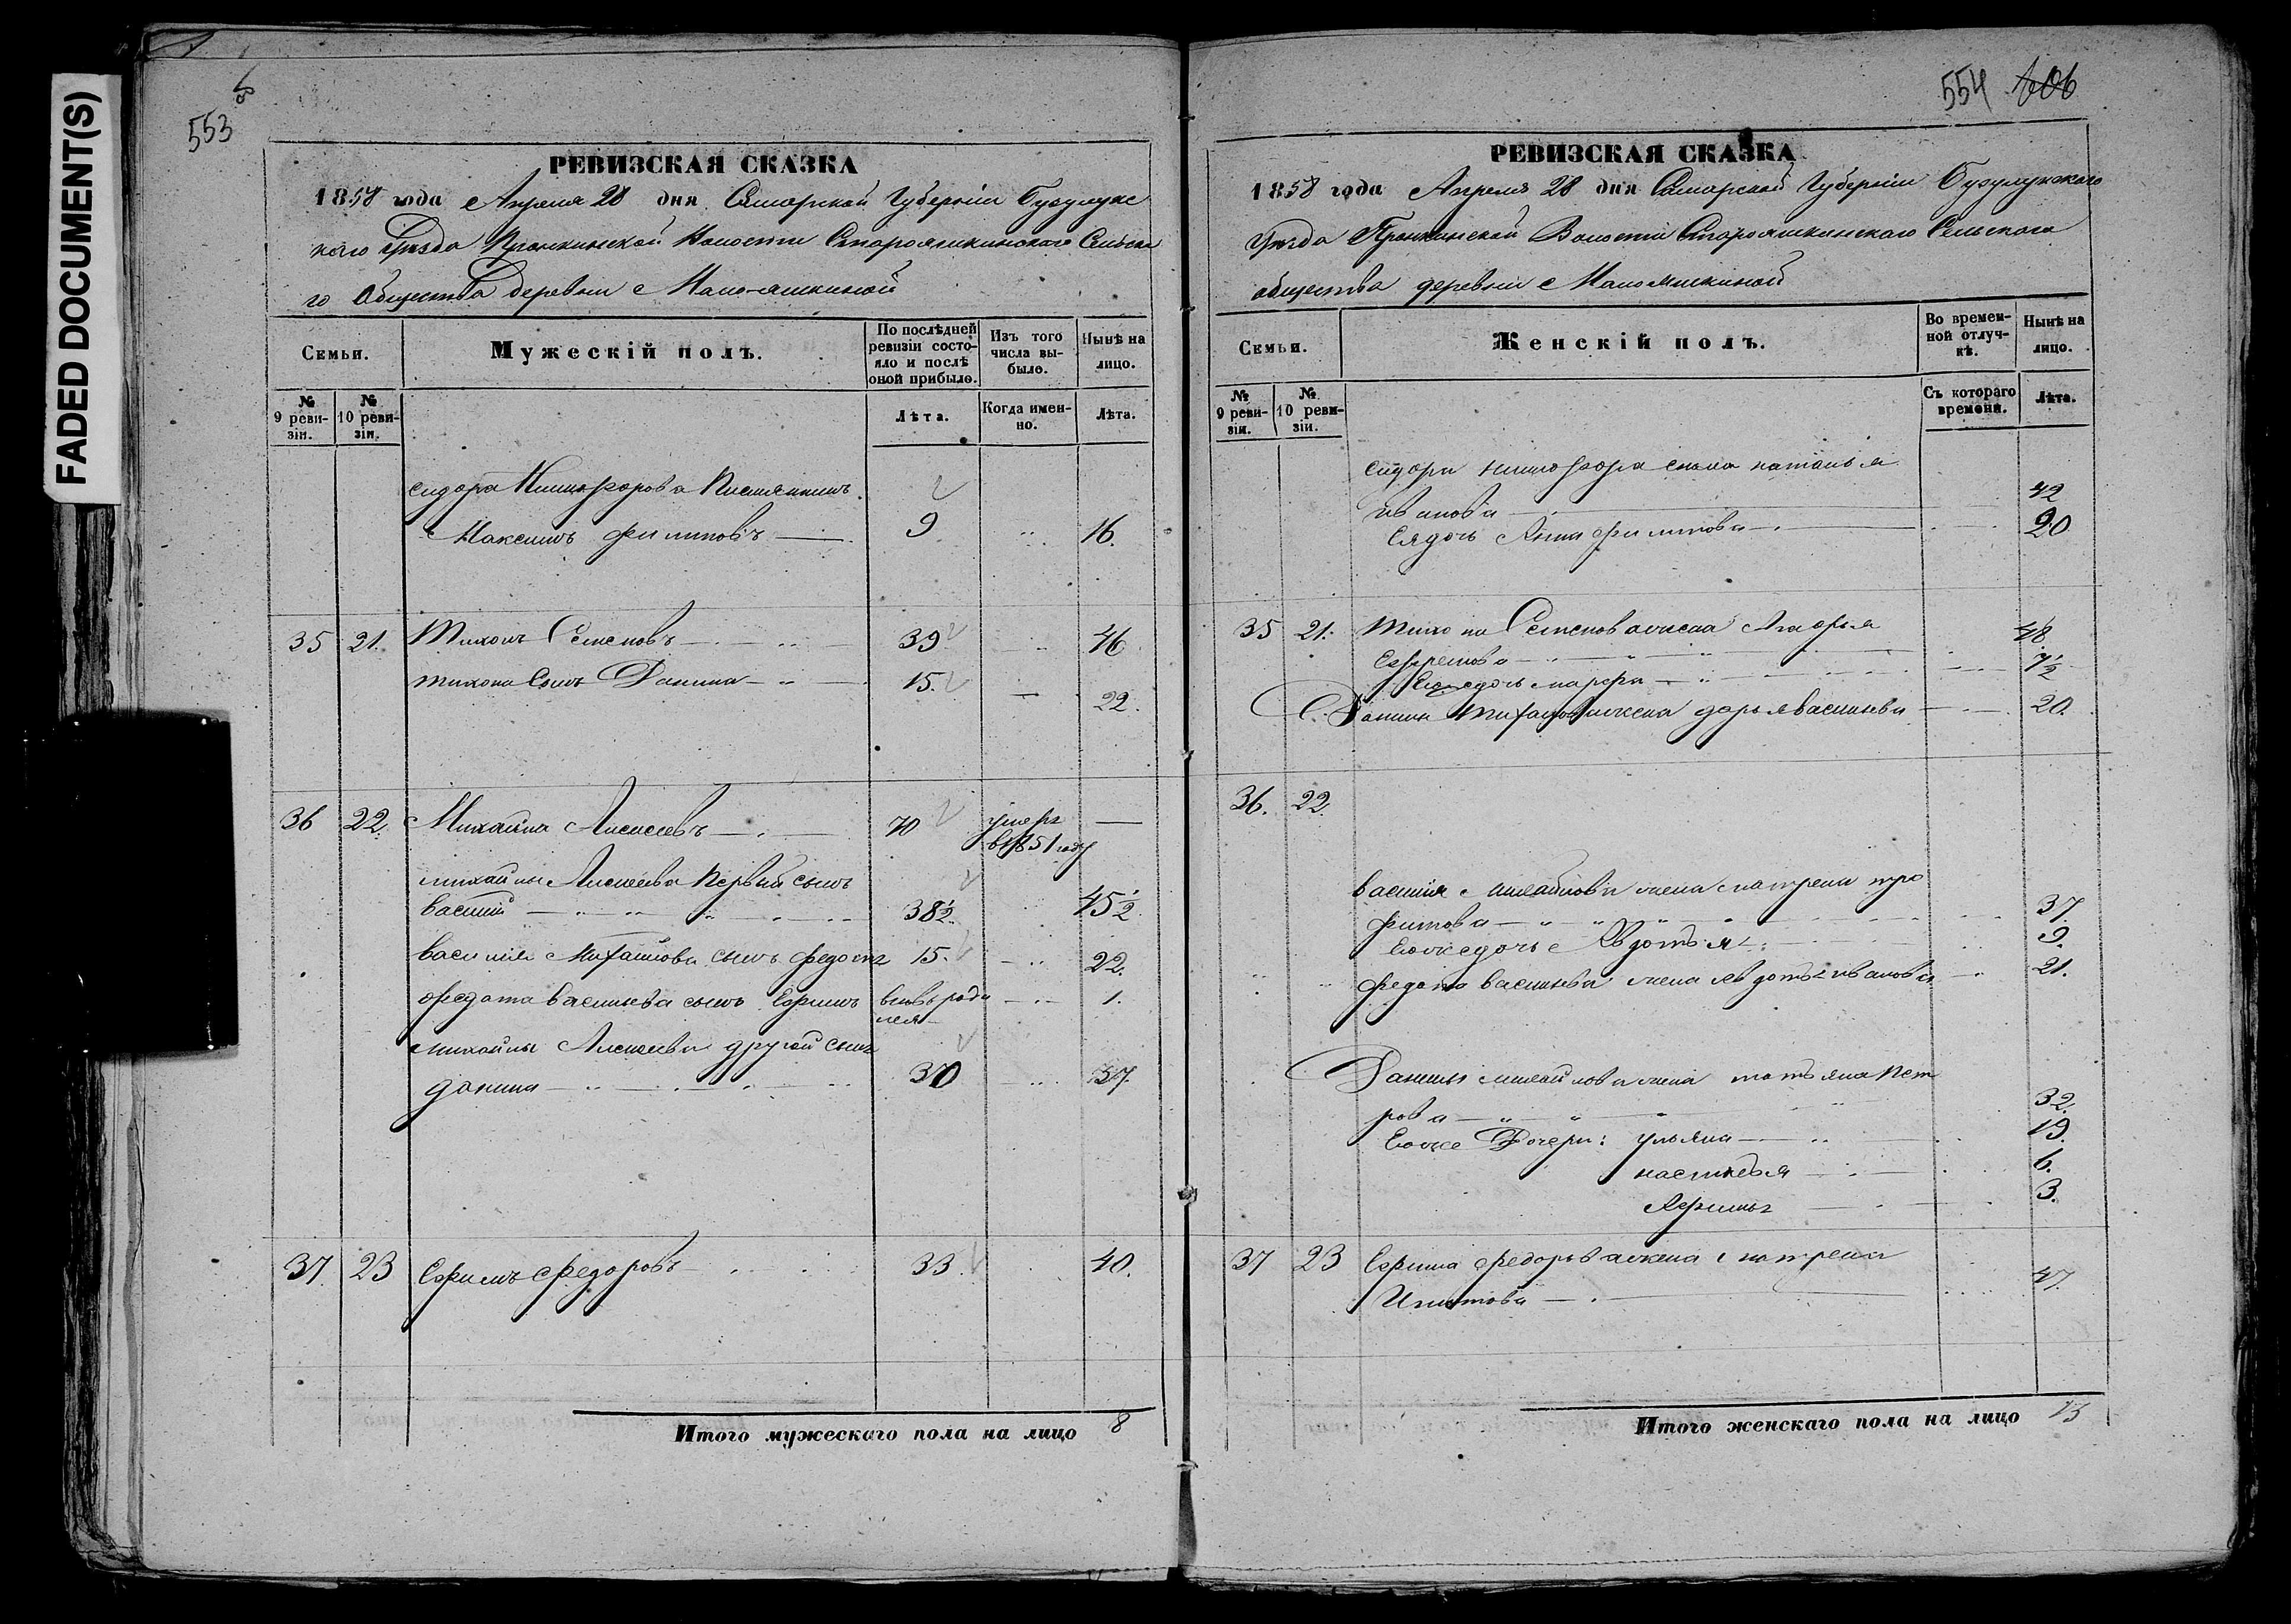 FADED DOCUMENT(S)
553
РЕВИЗСКАЯ СКАЗКА
1858 года Апреля 28 дня Самарской Губерніи Бузулукс
каго Уѣзда Пронкинской Волости Старояшкинскаго Сельска
го Общества деревни Малояшкиной
Семьи.
Мужескій полъ.
По послѣдней ревизіи состояло и послѣ оной прибыло.
Изъ того числа выбыло.
Нынѣ на лицо.
№ 9 ревизіи.
№ 10 ревизіи.
Лѣта.
Когда именно.
Лѣта.
сидора Никифорова
Максимъ филиповъ 9 16.
35 21. Тихонъ Семеновъ 39 46
тихона Сынъ Данила 15. 22.
36 22. Михайла Алексеевъ 70 умеръ —
в 1851 году
михайлы Алексеева Первый сынъ
василий 38½ 45½
василия Михайлова сынъ федотъ 15. 22.
федота васильева сынъ Ефимъ вновь роди 1.
лся
михайлы Алексеева другой сынъ
данила 30 37.
37. 23 Ефимъ Федоровъ 33 40.
Итого мужескаго пола на лицо 8
554 606
РЕВИЗСКАЯ СКАЗКА
1858 года Апреля 28 дня Самарской Губерніи Бузулукскаго
Уѣзда Пронкинской Волости Старояшкинскаго Сельскаго
общества деревни Малояшкиной
Семьи.
Женскій полъ.
Во временной отлучкѣ.
Нынѣ на лицо.
№ 9 ревизіи.
№ 10 ревизіи.
Съ котораго времени.
Лѣта.
сидора никифора наталья
иванова 42
Ея дочь Анна филипова 20
35 21. Тихона Семенова жена Марфья
Ефремова 48
дочь марфа 7½
Данилы Тихонова жена дарья васильева 20.
36. 22.
василия михайлова жена матрена тро
фимова 37.
Ево же дочь Авдотья 9.
федота васильева жена авдотья иванова 21.
Данилы михайлова жена татьяна Пет
рова 32.
Ево же Дочери: ульяна 19.
настасья 6.
Афимья 3.
37 23 Ефима федорова жена матрена
Ипатова 47.
Итого женскаго пола на лицо 13